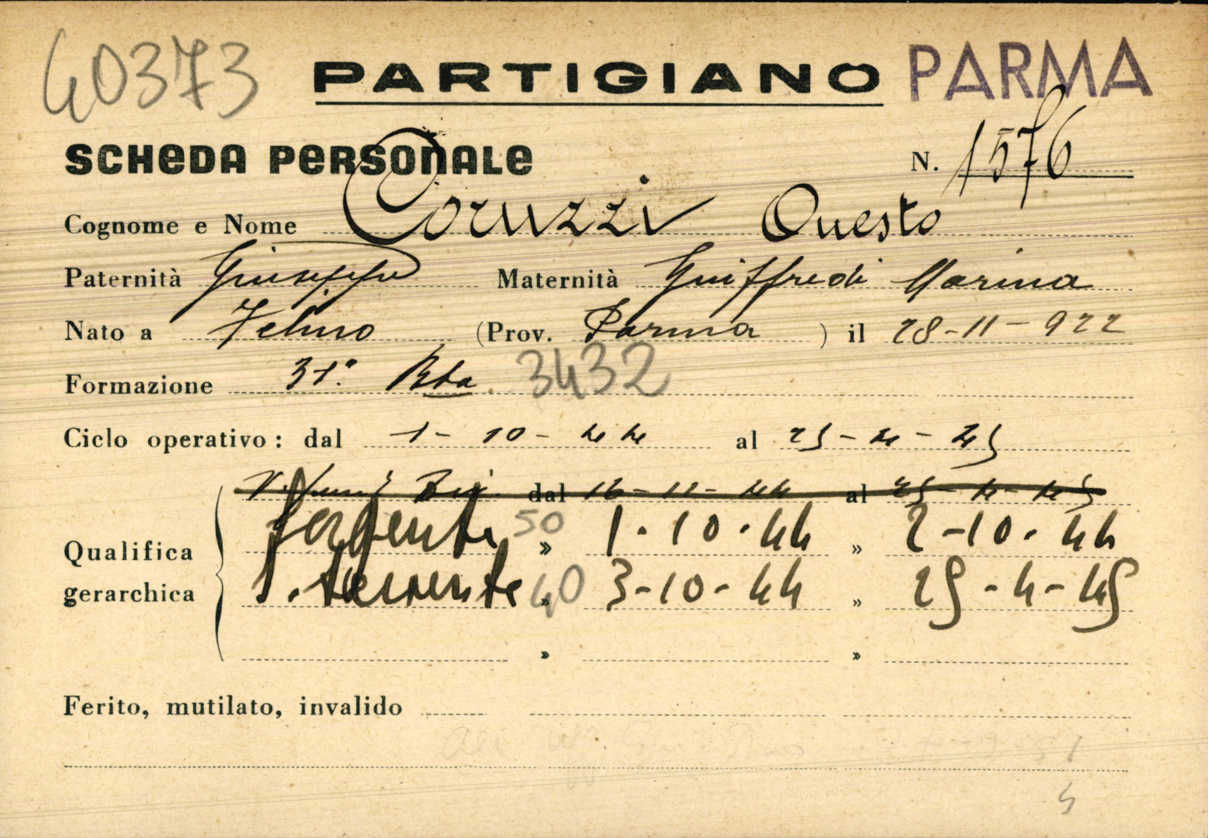 40373 PARTIGIANO PARMA
SCHEDA PERSONALE N. 1576
Cognome e Nome Coruzzi Questo
Paternità Giuseppe Maternità Guiffredi Marina
Nato a Felino (Prov. Parma ) il 28-11-922
Formazione 31ª Bta 3432
Ciclo operativo: dal 1-10-44 al 25-4-45
dal 16-11-44 al 25-4-45
Sergente 50 » 1-10-44 » 2-10-44
S. Tenente » 40 3-10-44 » 25-4-45
Qualifica
gerarchica
» »
Ferito, mutilato, invalido